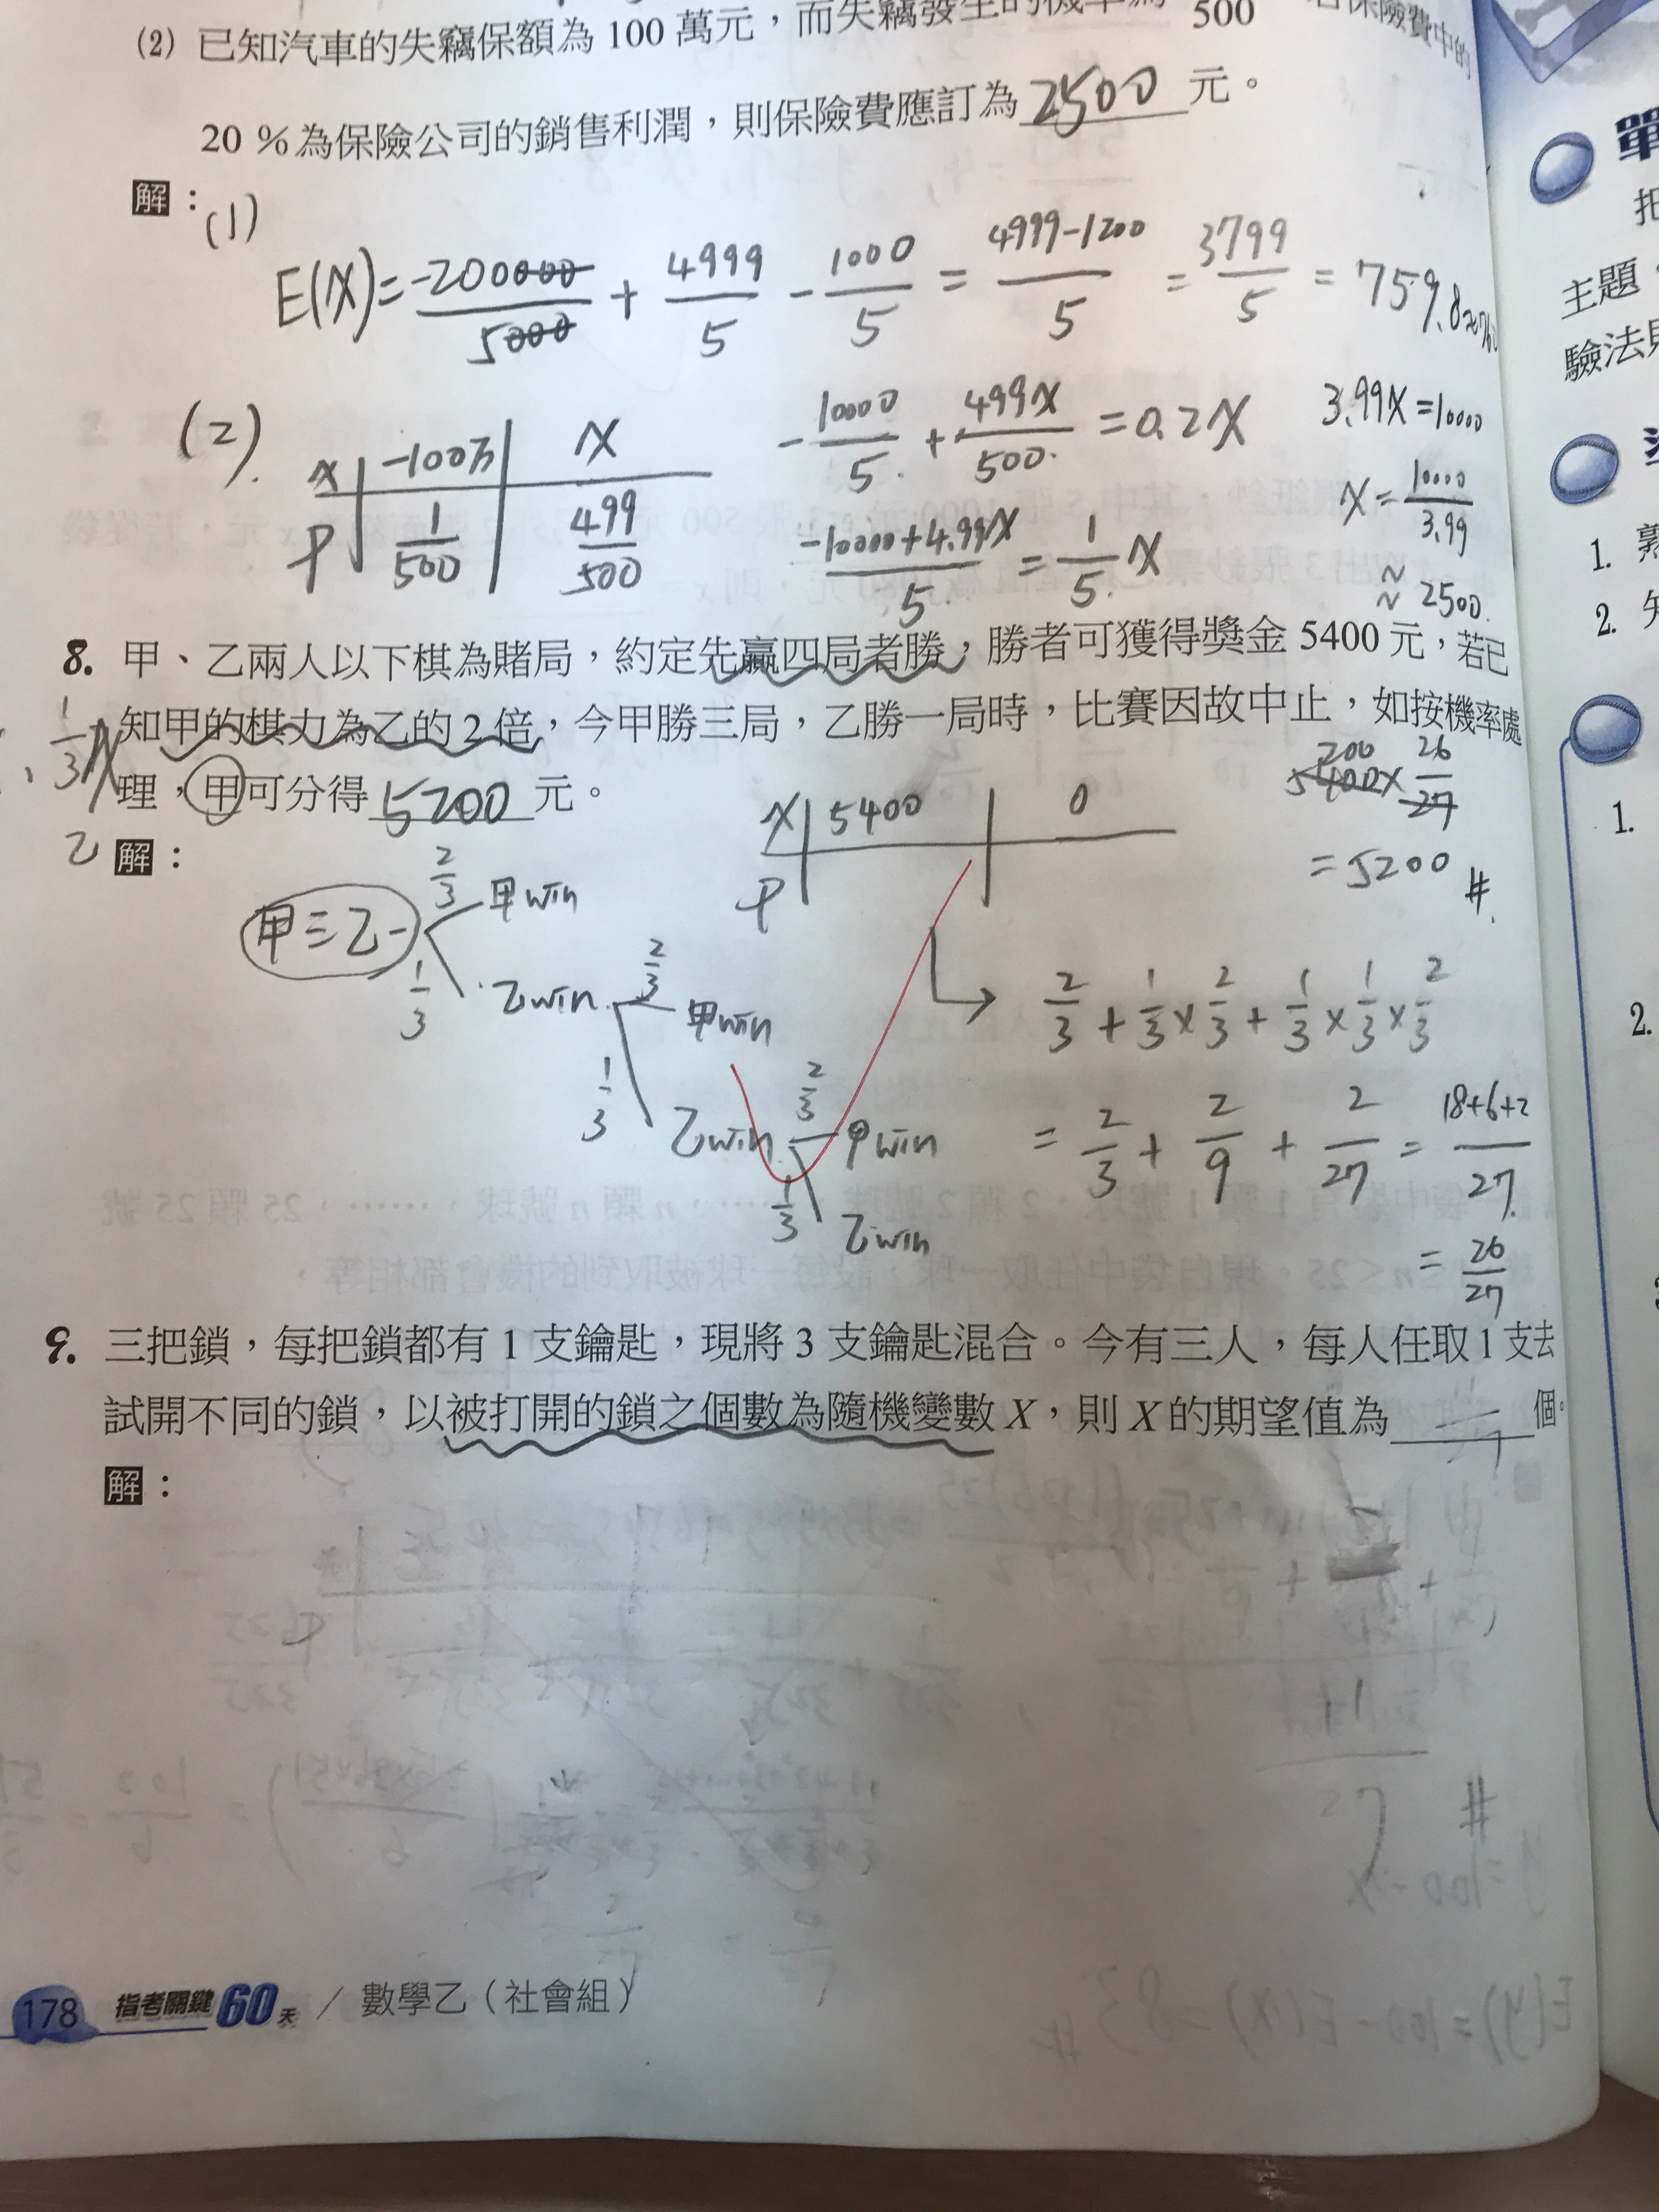 (2) 已知汽車的失竊保額為 100 萬元，而失竊發生的機率為 500 保險費中的
20 %為保險公司的銷售利潤，則保險費應訂為 2500 元。
解：(1)
E(X)= -200000/5000 + 4999/5 - 1000/5 = 4999-1200/5 = 3799/5 = 759.8≈760
(2). x -100万 x
P 1/500 499/500
-10000/5 + 499x/500 = 0.2x
-10000+4.99x/5 = 1/5 x
3.99x=10000
x= 10000/3.99
≈ 2500.
8. 甲、乙兩人以下棋為賭局，約定先贏四局者勝，勝者可獲得獎金 5400 元，若已
知甲的棋力為乙的 2 倍，今甲勝三局，乙勝一局時，比賽因故中止，如按機率處
理，甲可分得 5200 元。
1/3 x
乙
解：
x 5400 0
P
200
5400× 26/27
= 5200 #.
甲三乙一
2/3 甲win
1/3 乙win
2/3 甲win
1/3 乙win
2/3 甲win
1/3 乙win
2/3 + 1/3 × 2/3 + 1/3 × 1/3 × 2/3
= 2/3 + 2/9 + 2/27 = 18+6+2/27
= 26/27
9. 三把鎖，每把鎖都有 1 支鑰匙，現將 3 支鑰匙混合。今有三人，每人任取 1 支去
試開不同的鎖，以被打開的鎖之個數為隨機變數 X，則 X 的期望值為 個。
解：
178 指考關鍵60天 / 數學乙（社會組）
單
把
主題
驗法則
1. 熟
2. 知
1.
2.